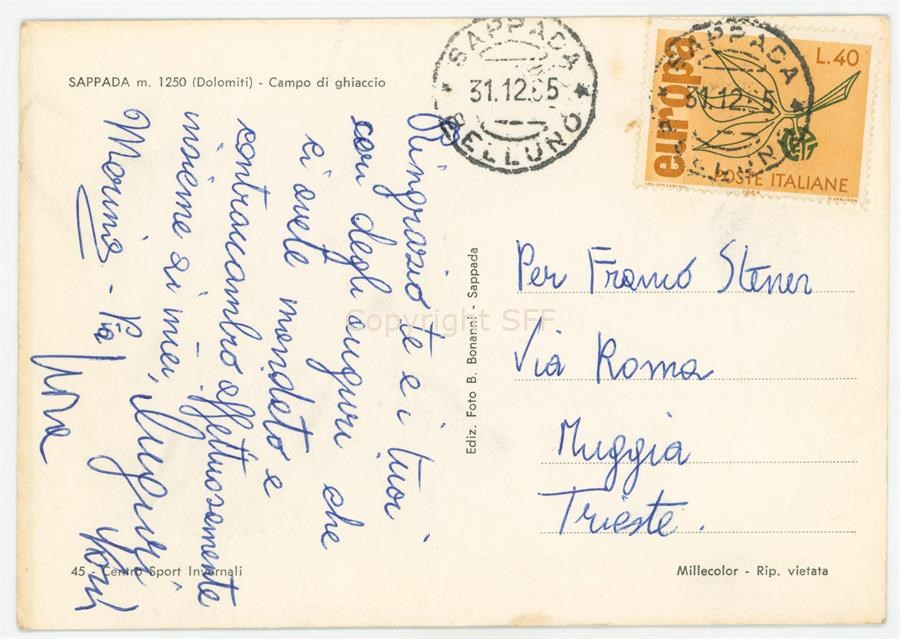 SAPPADA m. 1250 (Dolomiti) - Campo di ghiaccio
Ringrazio te e i tuoi
cari degli auguri che
ci avete mandato e
contraccambio affettuosamente
insieme ai miei, Auguri
Marina - Pia
SAPPADA
31.12.65
BELLUNO
SAPPADA
31.12.65
BELLUNO
europa
L.40
POSTE ITALIANE
Per Franco Stener
Via Roma
Muggia
Trieste.
Ediz. Foto B. Bonanni - Sappada
45 - Centro Sport Invernali
Millecolor - Rip. vietata
Copyright SFF